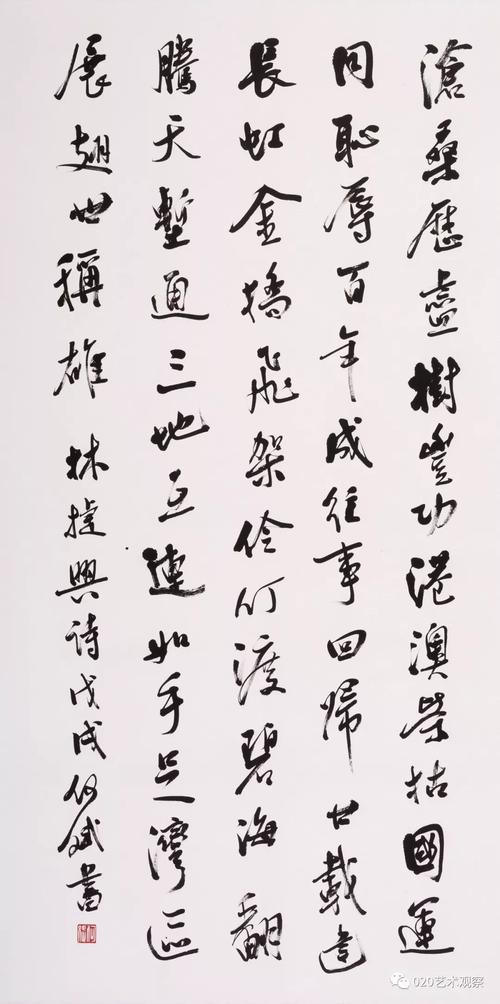 滄桑歷盡樹豐功港澳榮枯國運
同恥辱百年成往事回歸廿載建
長虹金橋飛架伶仃渡碧海翻
騰天塹通三地互連如手足灣區
展翅世稱雄 林捷興诗戊戌何斌書
020艺术观察